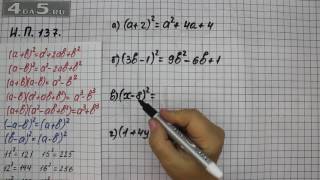 4DA5.RU
И. П. 137.
(a+b)²=a²+2ab+b²
(a-b)²=a²-2ab+b²
(a-b)(a+b)=a²-b²
(a-b)(a²+ab+b²)=a³-b³
(a+b)(a²-ab+b²)=a³+b³
(-a-b)²=(a+b)²
(b-a)²=(a-b)²
11²=121 15²=225
12²=144 16²=256
а) (a+2)²=a²+4a+4
б) (3b-1)²=9b²-6b+1
в) (x-
)²=
г) (1+4y